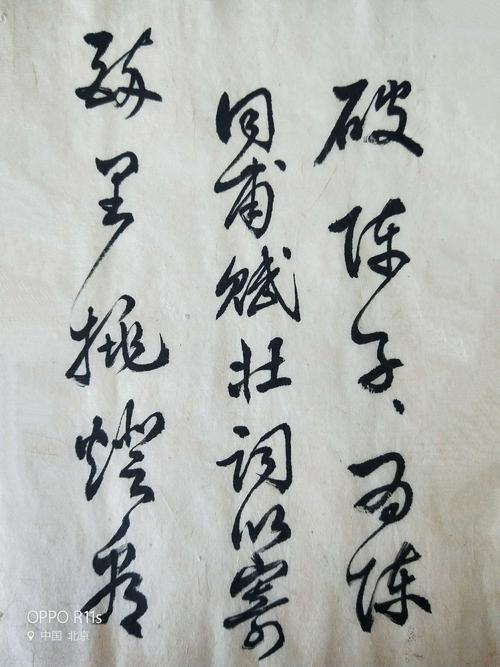 破陈子、为陈
同甫赋壮词以寄
醉里挑燈看
OPPO R11s
中国 北京